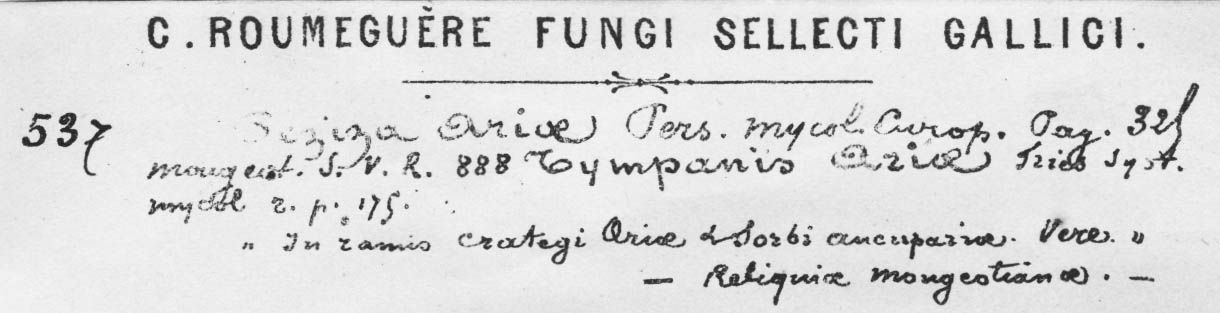 C. ROUMEGUÈRE FUNGI SELLECTI GALLICI.
537 Peziza Ariæ Pers. mycol. Europ. Pag. 325
mougeot. S. V. R. 888 Tympanis Ariæ Fries Syst.
mycol 2. p. 175.
" In ramis crategi Ariæ & Sorbi aucupariæ. Vere. "
— Reliquiæ mougeotianæ. —